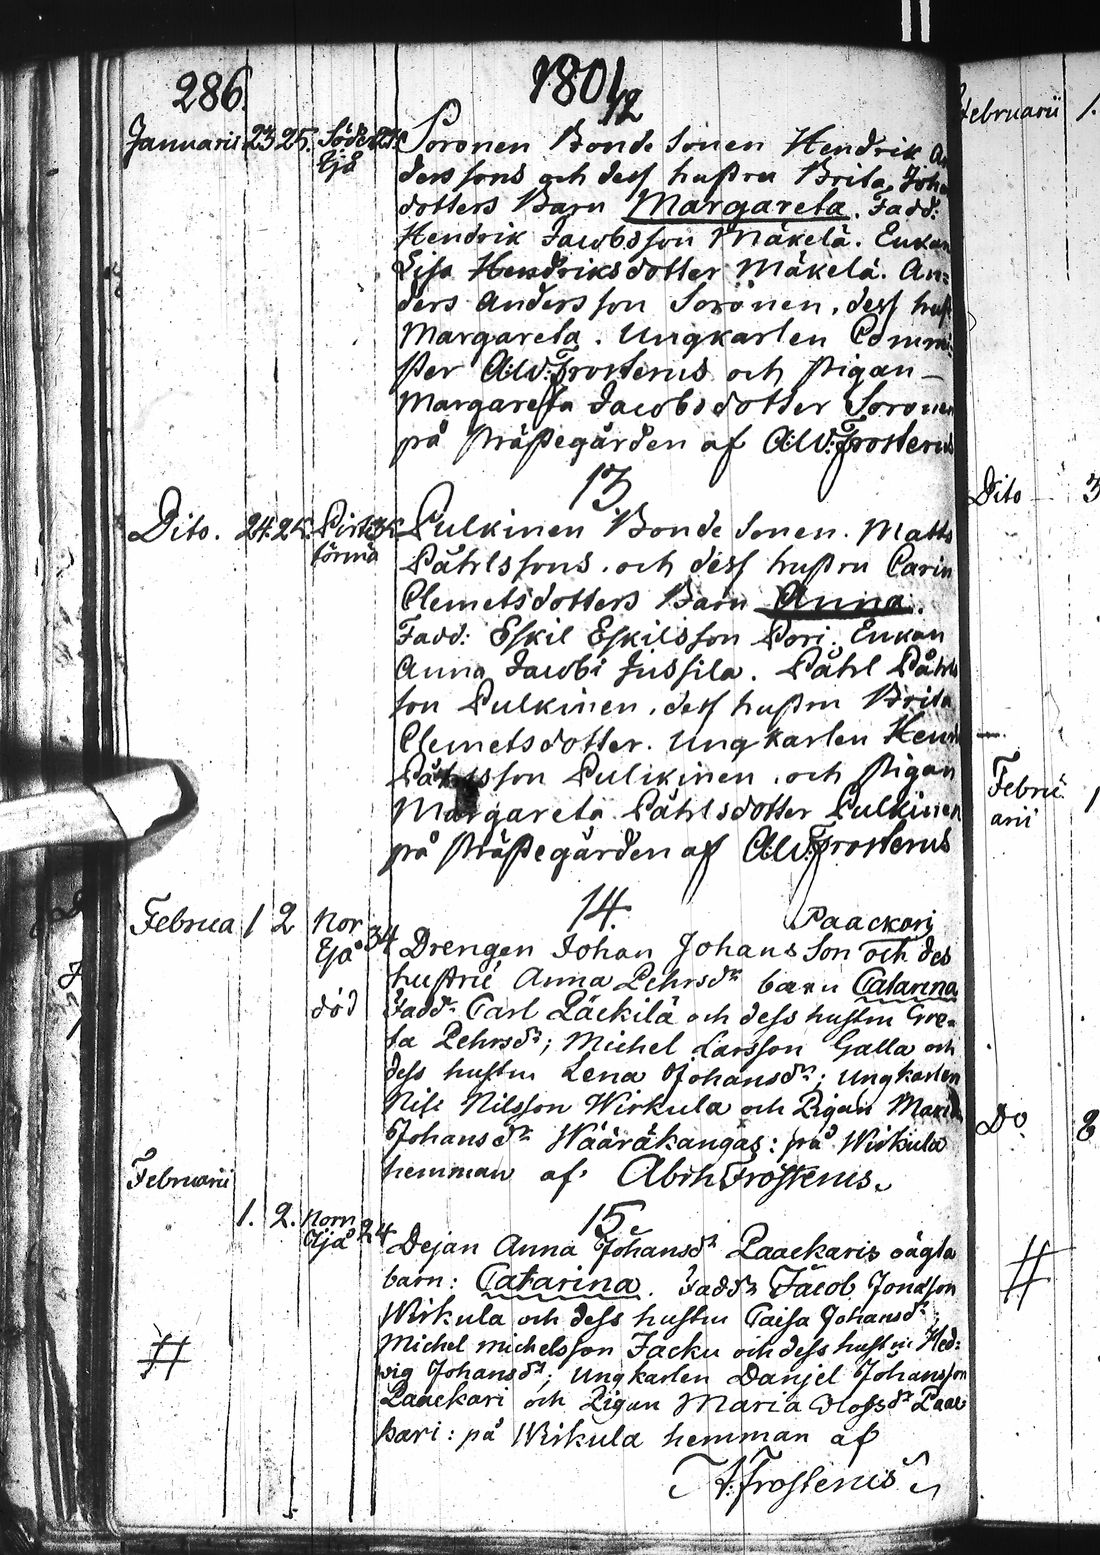 286.
1801
12
Januarii 23 25. Söder
Ejå
Soronen Bonde Sonen Hendrik An
derssons och dess hustru Brita Joha
dotters Barn Margareta. Fadd:
Hendrik Jacobsson Mäkelä. Enkan
Lisa Hendriksdotter Mäkelä. An=
ders Andersson Soronen, dess hust
Margareta. Ungkarlen Commi
ster A:W: Frosterus och Pigan
Margareta Jacobsdotter Soronen
på Prästegården af A:W: Frosterus
13
Dito. 24. 25. Pirte 34
törmä
Pulkinen Bonde Sonen. Matts
Påhlssons. och dess hustru Carin
Clemetsdotters Barn Anna.
Fadd: Eskil Eskilsson Pori. Enkan
Anna Jacobi Jussila. Påhl Påhls
son Pulkinen, dess hustru Brita
Clemetsdotter. Ungkarlen Henr
Påhlsson Pulkinen, och Pigan
Margareta Påhlsdotter Pulkinen
på Prästegården af A:W: Frosterus
14.
Februa 1 2 Nor 34
Ejå
död
Paackari
Drengen Johan Johans Son och des
hustrus Anna Pehrsdr barn Catarina
Fadd. Carl Päckilä och dess hustru Gre=
ta Pehrsdr; Michel Larsson Galla och
dess hustru Lena Johansdr; Ungkarlen
Nils Nilsson Wirkula och Pigan Maria
Johansdr Wääräkangas: på Wirkula
hemman af. Abrh Frosterus.
15
Februarii
1. 2. Norr 24
Ejå
Dejan Anna Johansdr Paackaris oägta
barn: Catarina. Faddr Jacob Jonasson
Wirkula och dess hustru Caisa Johansdr;
Michel Michelsson Jacku och dess hustru Hed=
vig Johansdr; Ungkarlen Danjel Johansson
Paackari och Pigan Maria Olofsdr Paac
kari: på Wirkula hemman af
A: Frosterus
Februarii 1.
Dito 3
Febru
arii 1
Do. 8